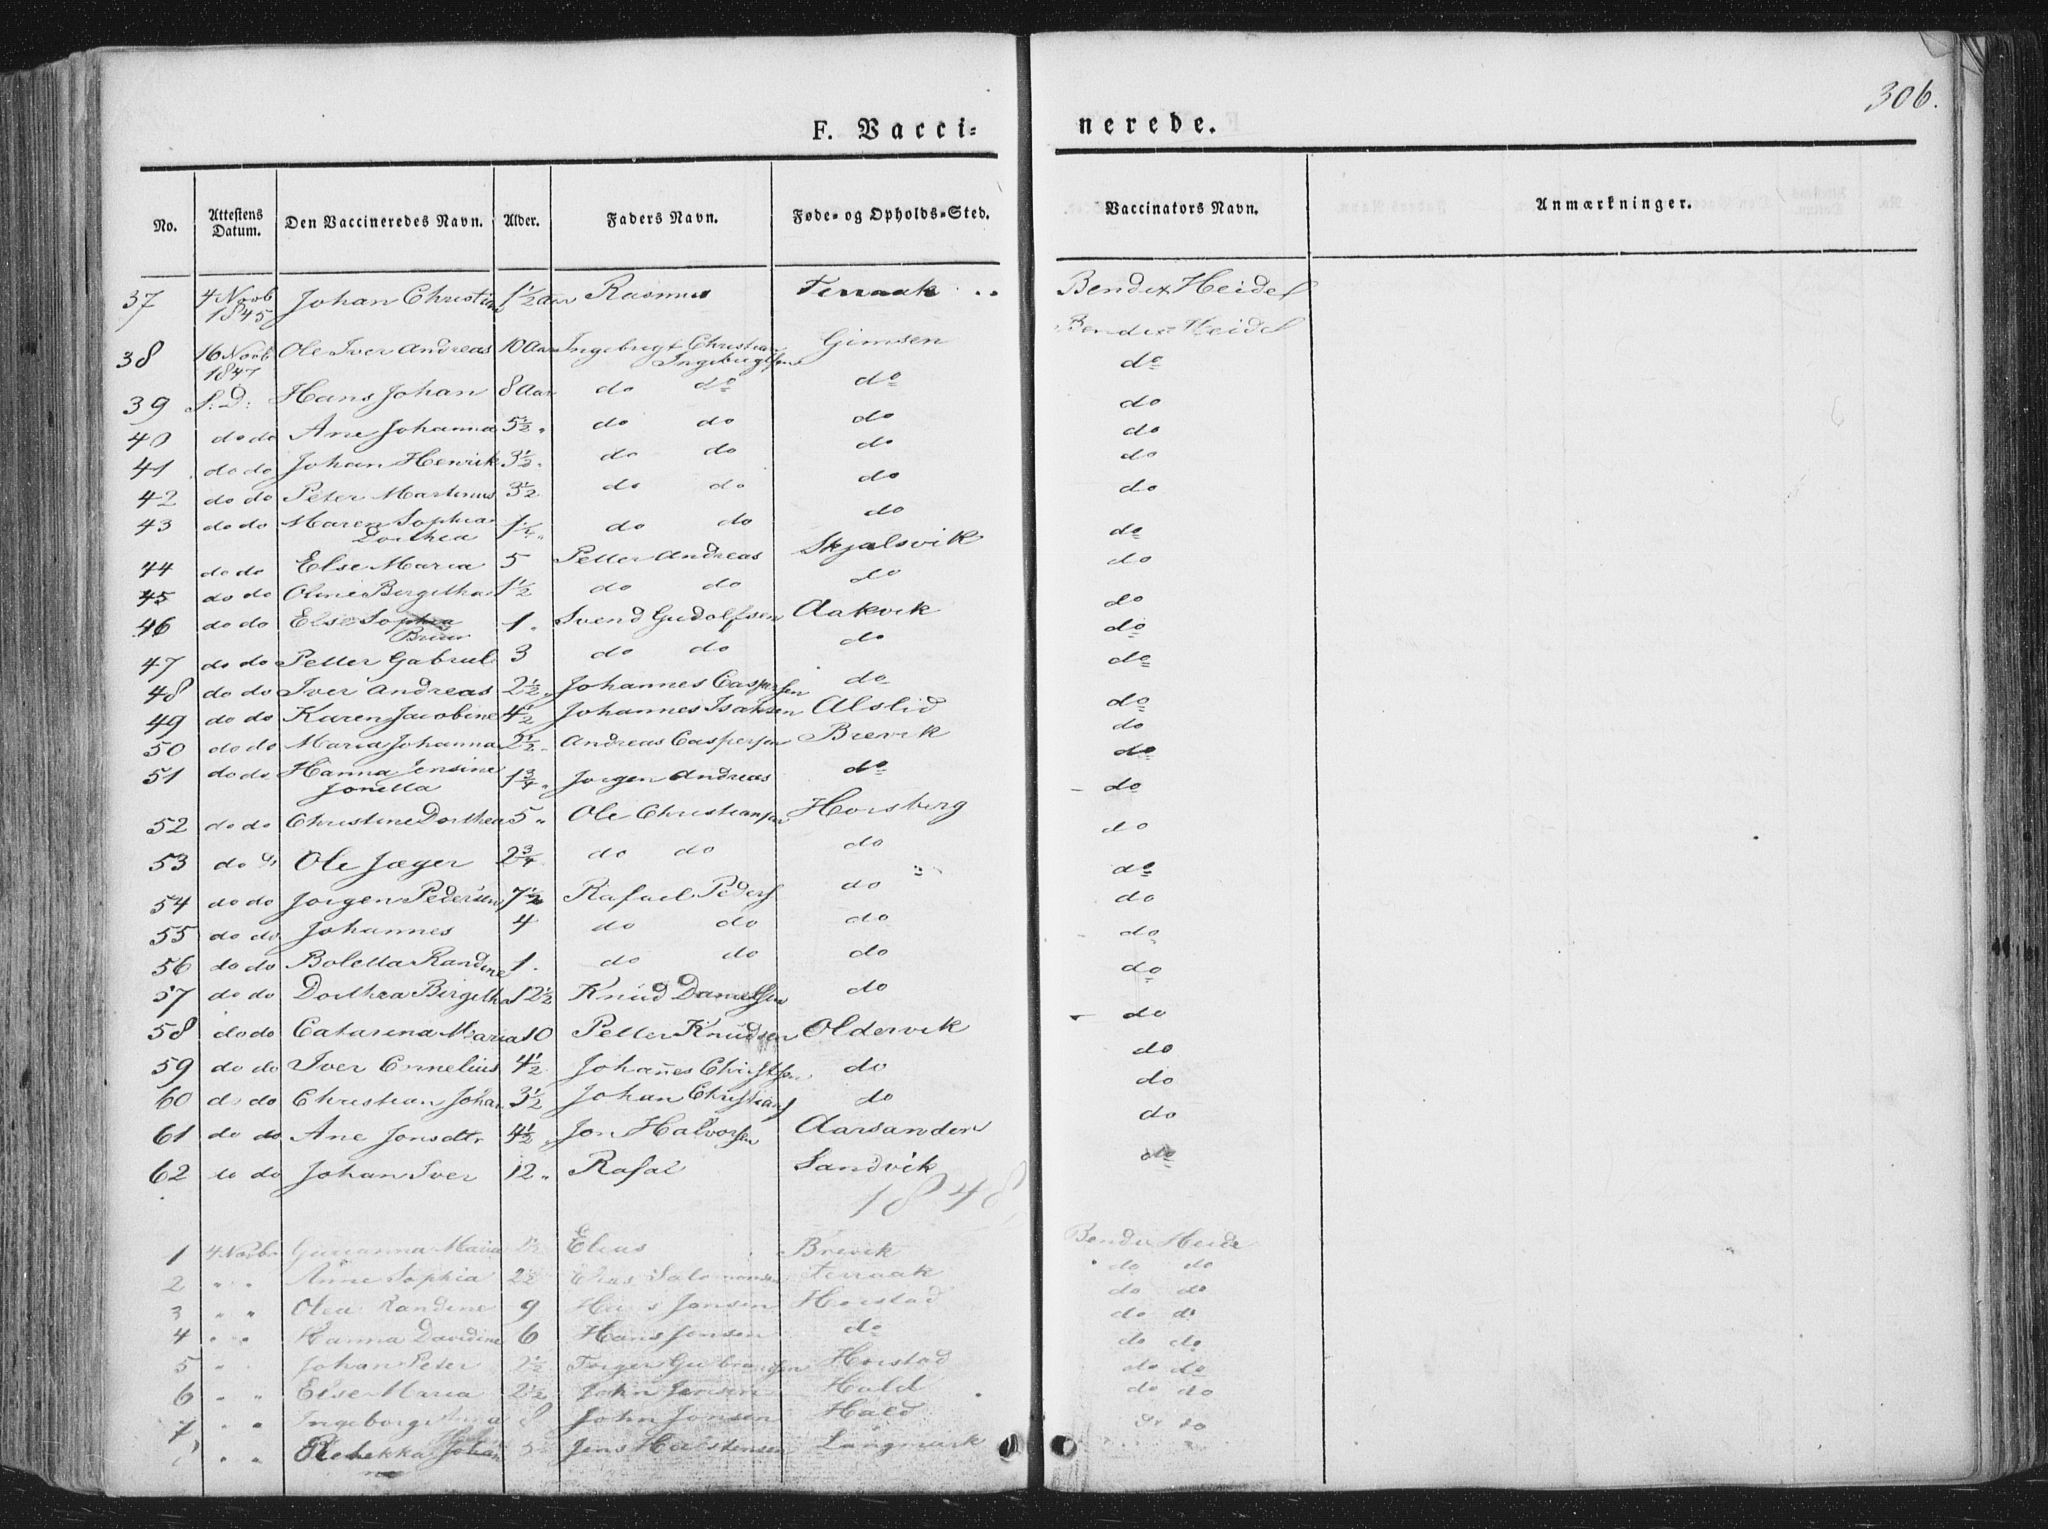 306.
F. Vacci= nerede.
No. Attestens Datum. Den Vaccineredes Navn. Alder. Faders Navn. Føde- og Opholds-Sted. Vaccinators Navn. Anmærkninger.
37 4 Novb 1845 Johan Christian 1½ aar Rasmus Terraak Bendix Heidel
Bendix Heidel
38 16 Novb 1847 Ole Iver Andreas 10 Aar Ingebrigt Christian Ingebrigtsen Gimsen do
39 S: D: Hans Johan 8 Aar do do do do
40 do do Ane Johanna 5½ " do do do do
41 do do Johan Henrik 3½ " do do do do
42 do do Peter Martinus 3½ do do do do
43 do do Maren Sophia Dorthea 1½ " do do do do
44 do do Else Maria 5 Petter Andreas Skjælsvik do
45 do do Oline Bergitha 1½ do do do do
46 do do Else Sophia 1 " Svend Gudolfsen Aakvik do
47 do do Petter Gabriel 3 do do do do
48 do do Iver Andreas 2½ " Johannes Caspersen do do
49 do do Karen Jacobine 4½ Johannes Isaksen Alslid do
50 do do Maria Johanna 2½ " Andreas Caspersen Brevik do
51 do do Hanna Jensine Jonetta 1¾ " Jørgen Andreas do do
52 do do Christine Dorthea 5 " Ole Christiansen Horsberg do
53 do do Ole Jæger 2¾ do do do do
54 do do Jørgen Pedersen 7½ Rafael Peders do do
55 do do Johannes 4 do do do do
56 do do Boletta Randine 1 . do do do do
57 do do Dorthea Birgitha 12½ Knud Danielsen do do
58 do do Catarina Maria 10 Petter Knudsen Oldervik do
59 do do Iver Cornelius 4½ Johañes Christsen do do
60 do do Christian Johan 3½ Johan Christians do do
61 do do Ane Jonsdtr 4½ " Jon Halvorsen Aarsander do
62 do do Johan Iver 12 " Rafal Sandvik do
1848
1 4 Novbr Gurianna Maria 2½ Elias Brevik Bendix Heide
2 " " Anne Sophia 2½ Elias Salomonsen Terraak do do
3 " " Olea Randine 9 Hans Jonsen Horstad do do
4 " " Hanna Davidine 6 Hans Jonsen do do do
5 " " Johan Peter 2½ Torger Gulbransen Horstad do do
6 " " Else Maria 2½ John Jensen Hald do do
7 " " Ingeborg Anna 8 John Jonsen Hald do do
" " Rebekka Johanne Jens Langmark